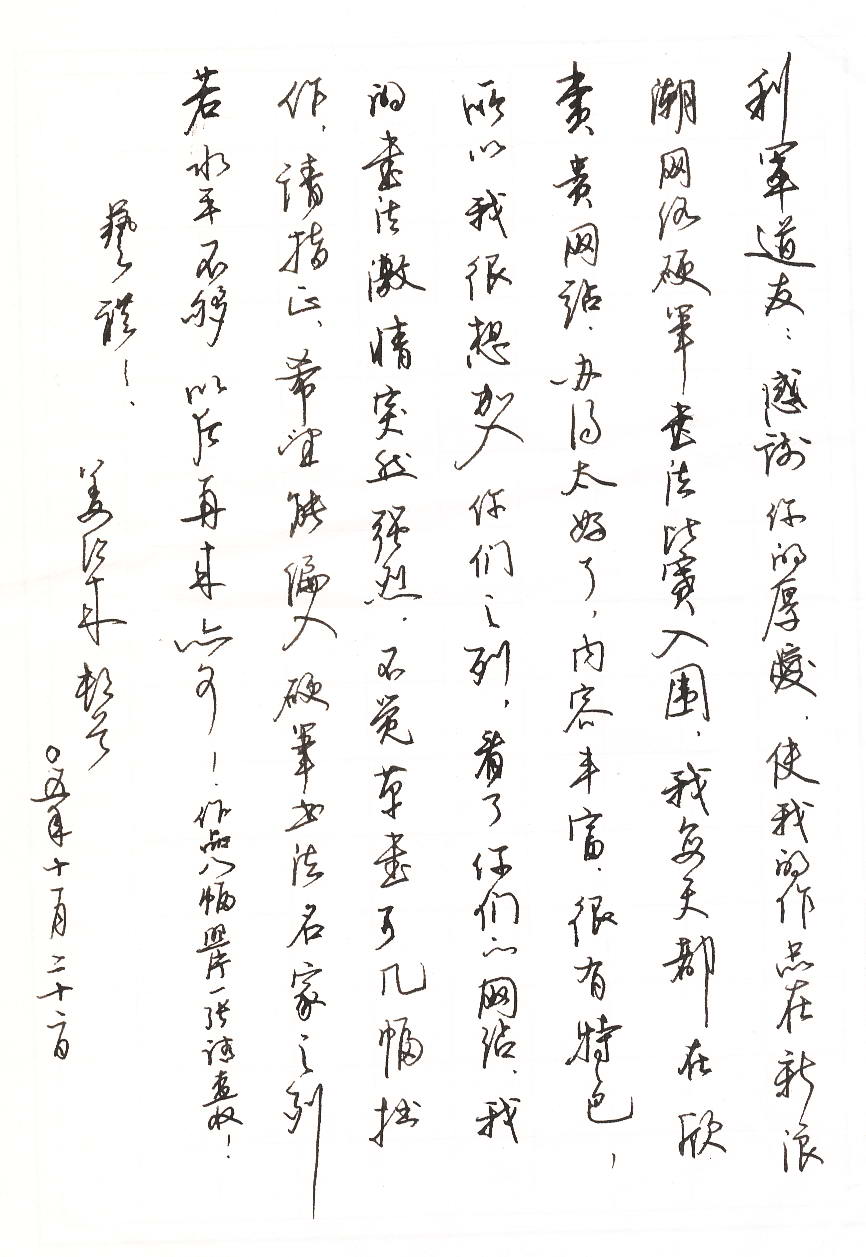 利军道友：感谢你的厚爱，使我的作品在新浪
潮网络硬笔书法比赛入围，我每天都在欣
赏贵网站，办得太好了，内容丰富，很有特色，
所以我很想加入你们之列，看了你们的网站，我
的书法激情突然强烈，不觉草书了几幅拙
作，请指正，希望能编入硬笔书法名家之列
若水平不够以后再来！作品八幅照片一张请查收！
艺祺！
姜 顿首
〇五年十一月二十二日